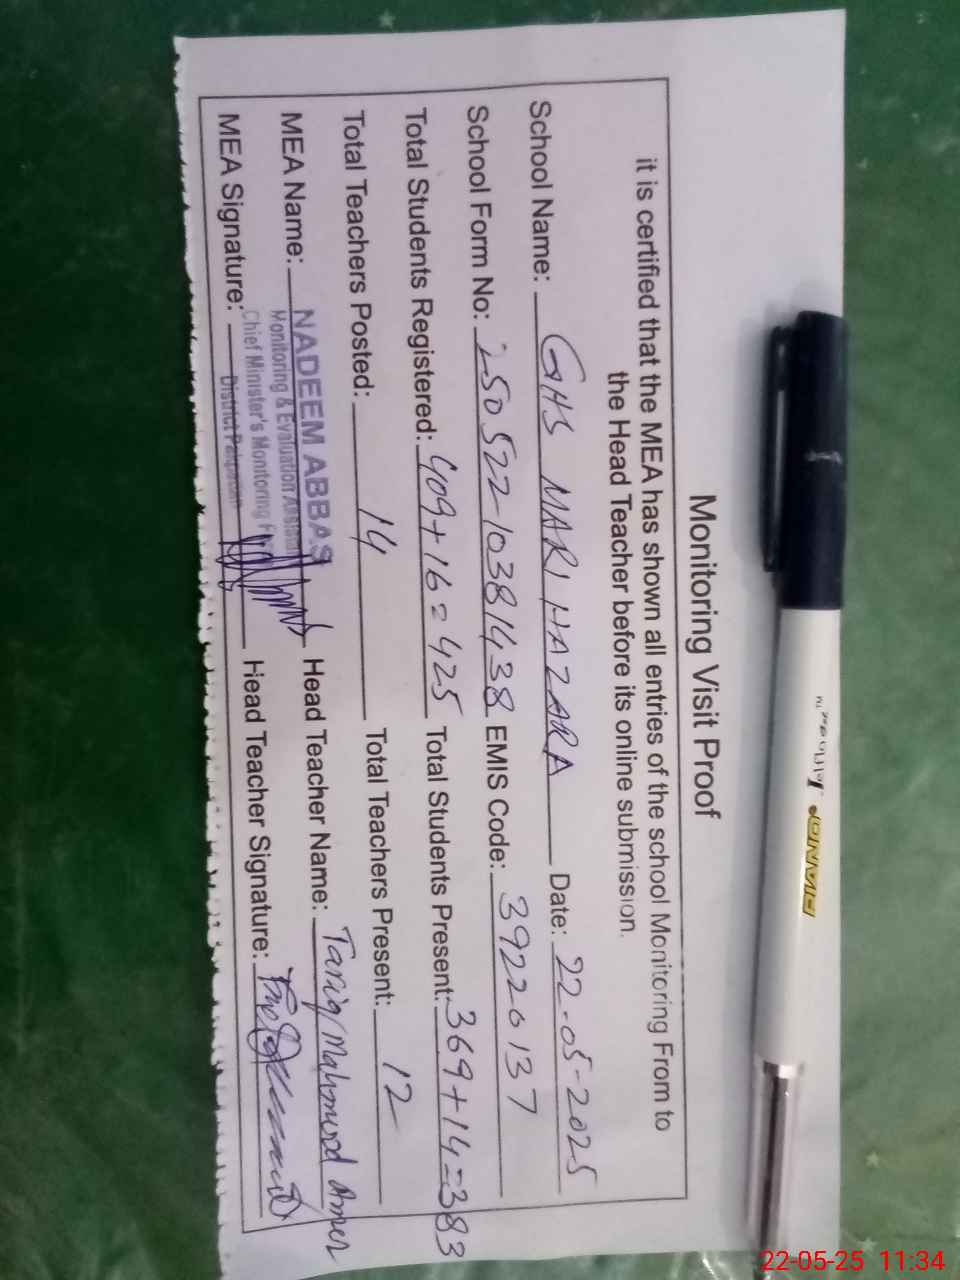 Monitoring Visit Proof
it is certified that the MEA has shown all entries of the school Monitoring From to
the Head Teacher before its online submission.
School Name: GHS MARI HAZARA Date: 22-05-2025
School Form No: 250522-10381438 EMIS Code: 39220137
Total Students Registered: 409+16=425 Total Students Present: 369+14=383
Total Teachers Posted: 14 Total Teachers Present: 12
MEA Name: NADEEM ABBAS Head Teacher Name: Tariq Mahmood Amer
Monitoring & Evaluation Assistant
Chief Minister's Monitoring
MEA Signature: District Pakpattan Head Teacher Signature:
PIANO
22-05-25 11:34